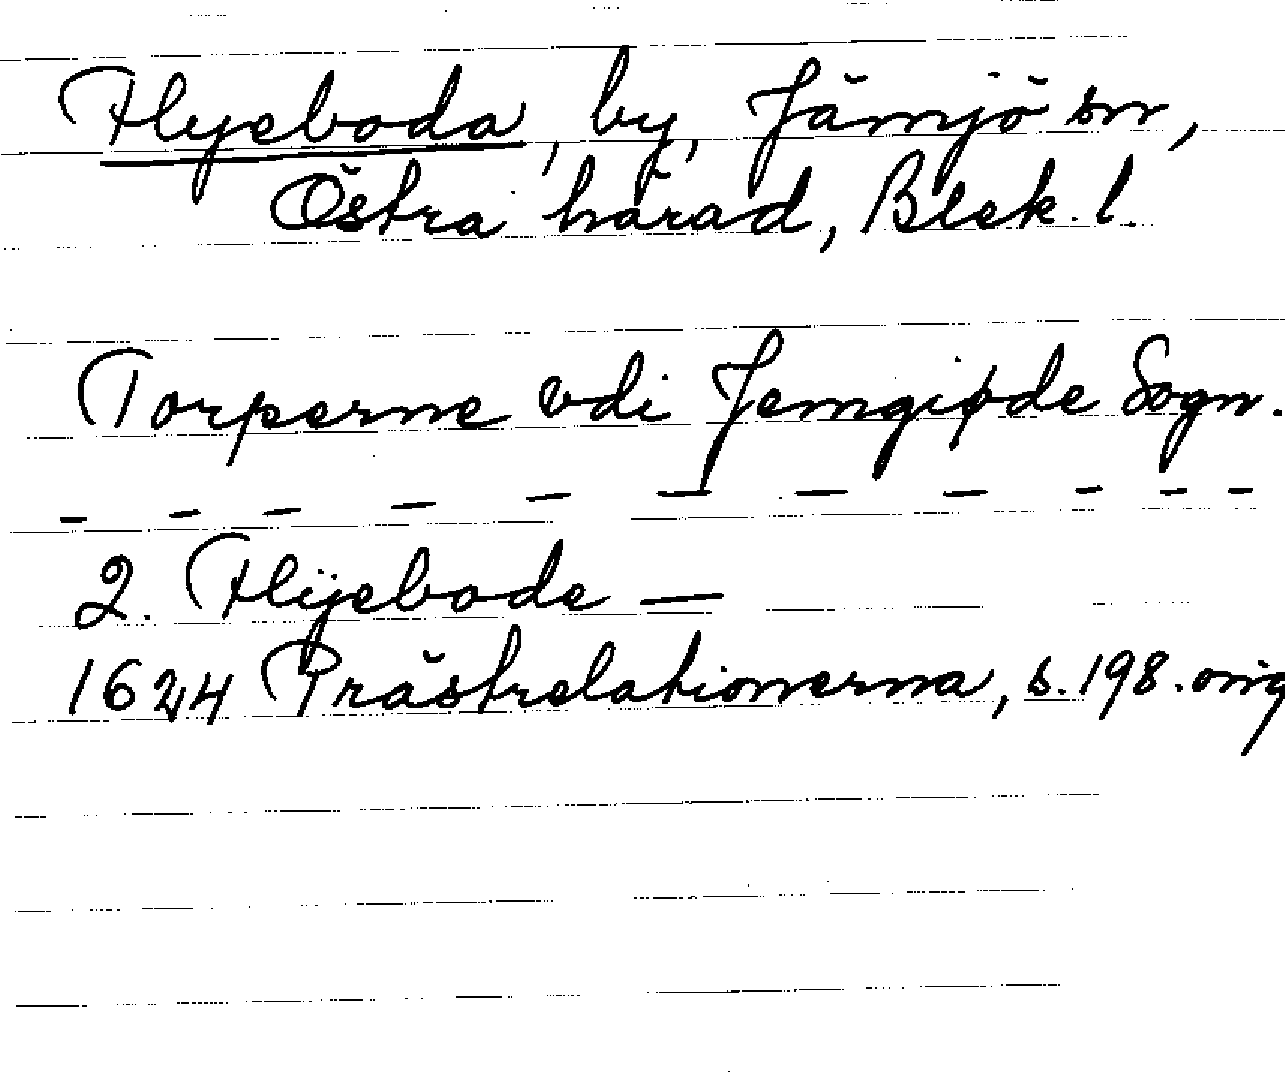 Flyeboda, by, Jämjö sn,
Östra härad, Blek. l.
Torperne vdi Jemgiøde Sogn.
- - - - - - - - - - -
2. Flÿebode —
1624 Prästrelationerna, s. 198. orig